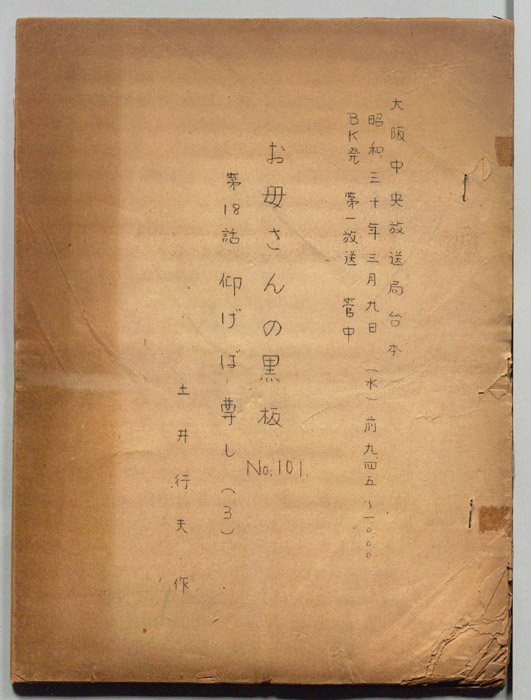 大阪中央放送局台本
昭和三十年三月九日(水)前九.四五~一〇.〇〇
BK発 第一放送 管中
お母さんの黒板
No.101.
第18話 仰げば尊し(3)
土井行夫 作